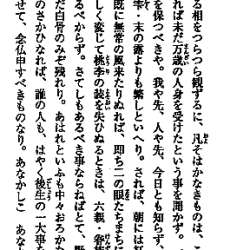 る相をつらつら観ずるに、凡そはかなきものは、こ
れば未だ万歳の人身を受けたという事を聞かず。
を保つべきや。我や先、人や先、今日とも知らず、
雫・末の露よりも繁しといへり。されば、朝には
既に無常の風来たりぬれば、即ち二の眼たちまち
しく変じて桃李の装を失ひぬるときは、六親・眷
るべからず。さてしもあるべき事ならねばとて、
だ白骨のみぞ残れり。あはれといふも中々おろか
のさかひなれば、誰の人も、はやく後生の一大事
せて、念仏申すべきものなり。あなかしこ　あな